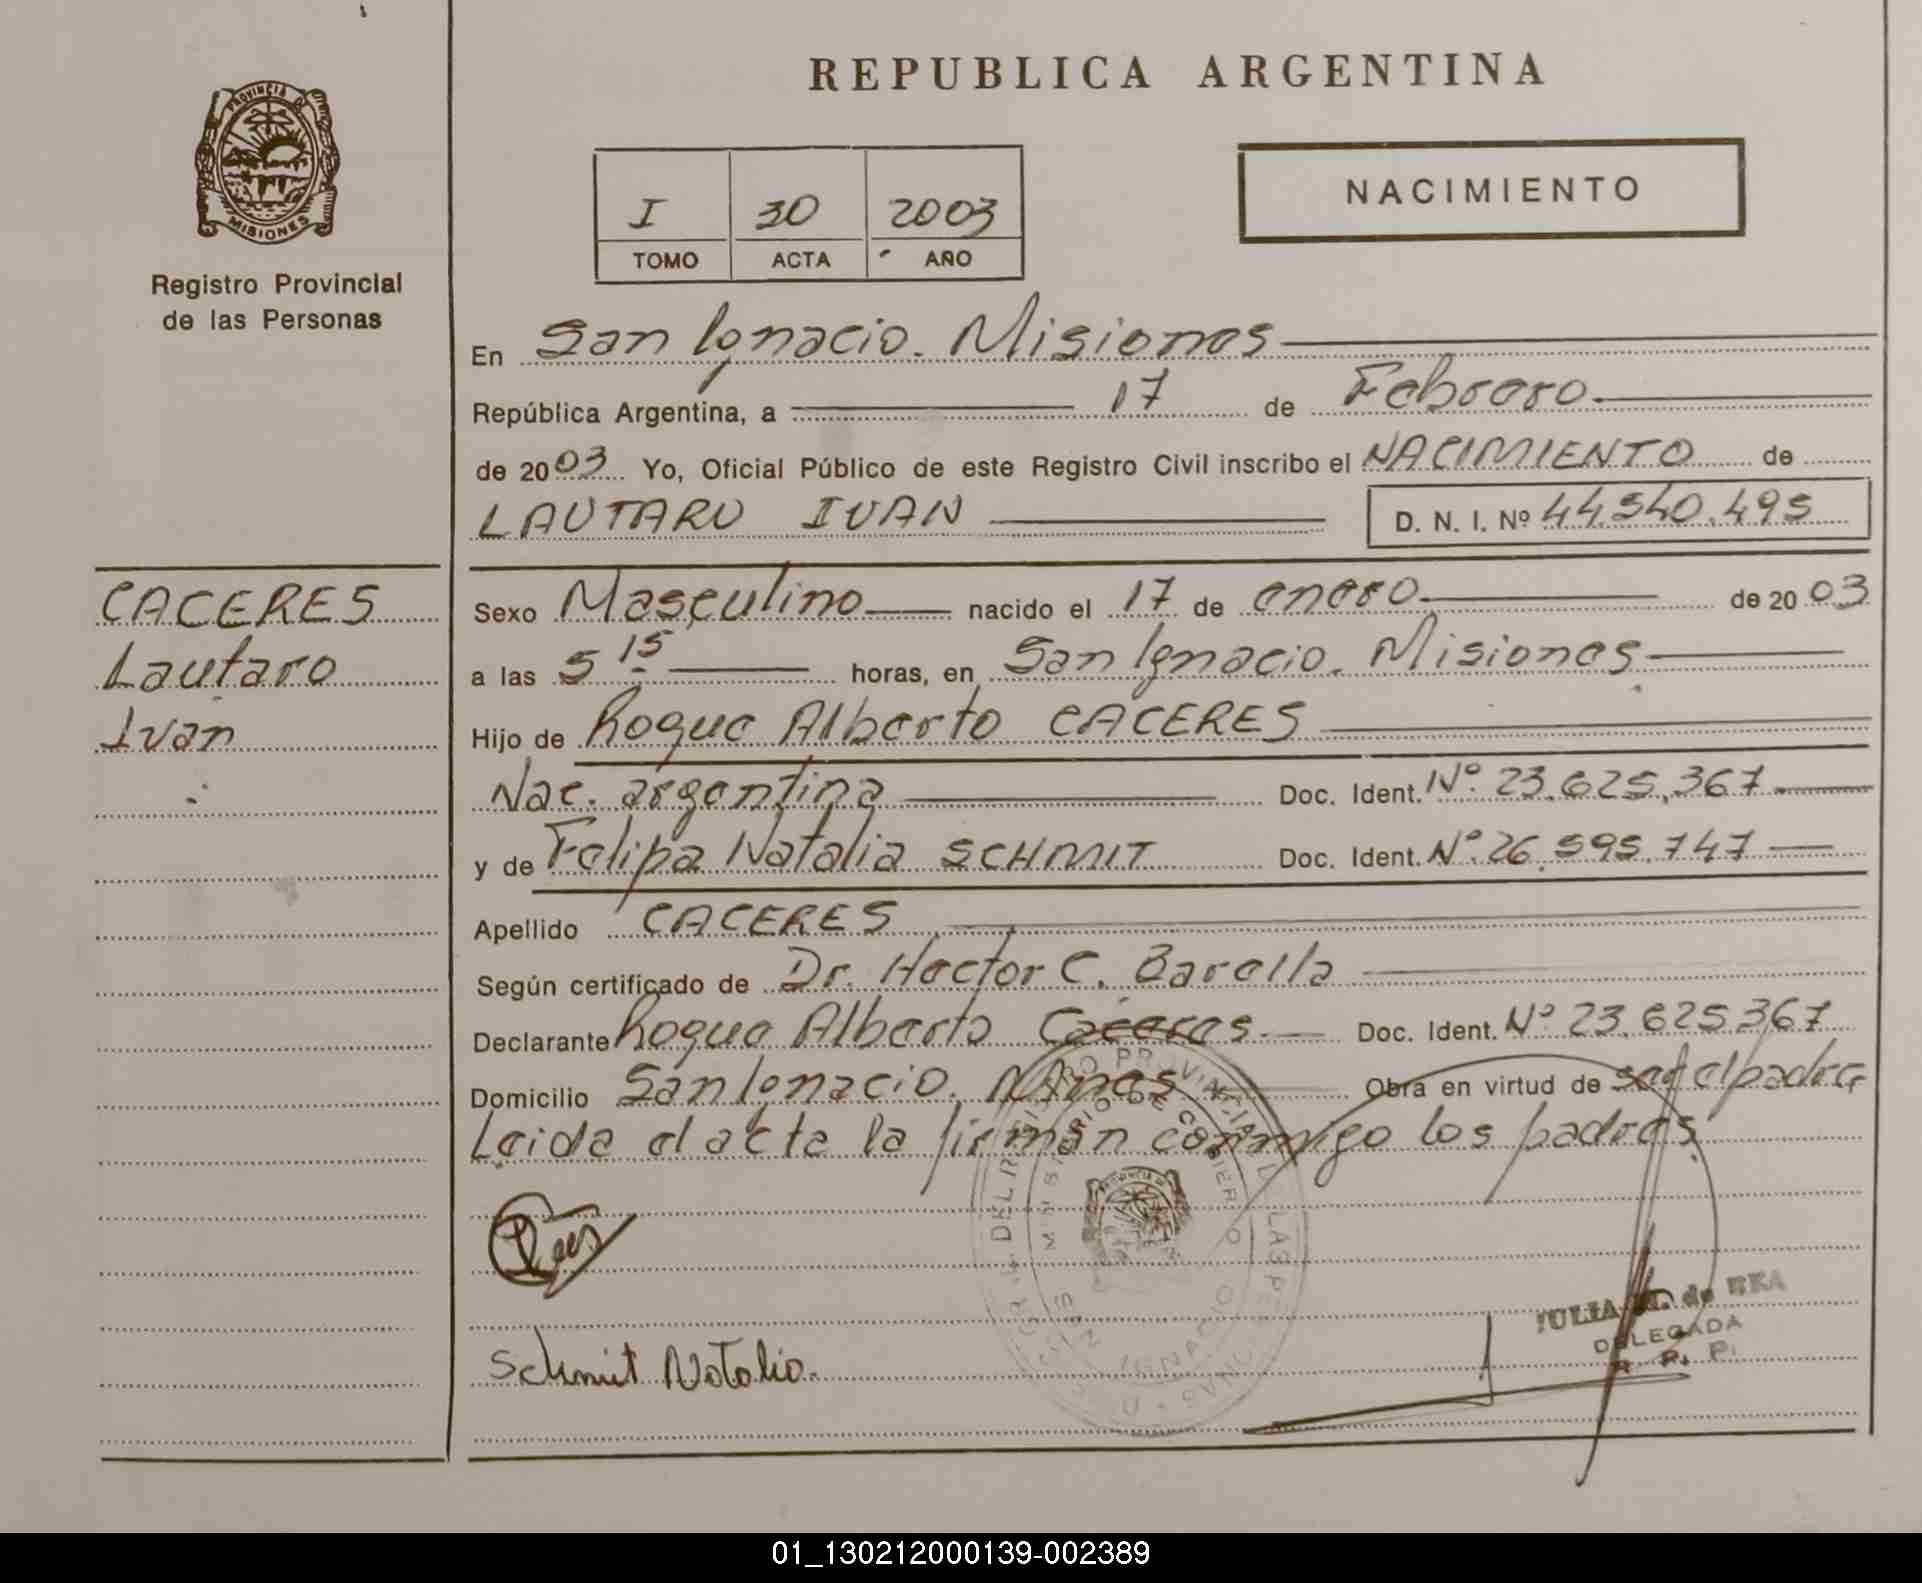 REPUBLICA ARGENTINA
PROVINCIA DE
MISIONES
Registro Provincial
de las Personas
I 30 2003
TOMO ACTA AÑO
NACIMIENTO
En San Ignacio. Misiones
República Argentina, a 17 de Febrero
de 2003 Yo, Oficial Público de este Registro Civil inscribo el NACIMIENTO de
LAUTARO IVAN D. N. I. Nº 44.540.495
CACERES
Lautaro
Ivan
Sexo Masculino nacido el 17 de enero de 2003
a las 5 15 horas, en San Ignacio. Misiones
Hijo de Roque Alberto CACERES
Nac. argentina Doc. Ident. Nº 23.625.367
y de Felipa Natalia SCHMIT Doc. Ident. Nº 26.595.747
Apellido CACERES
Según certificado de Dr. Hector C. Barella
Declarante Roque Alberto Caceres Doc. Ident. Nº 23.625.367
Domicilio San Ignacio. Mnes Obra en virtud de ser el padre
Leida el acta la firman conmigo los padres.
Schmit Natalia.
JULIA de
DELEGADA
R. P. P.
SAN IGNACIO
01_130212000139-002389